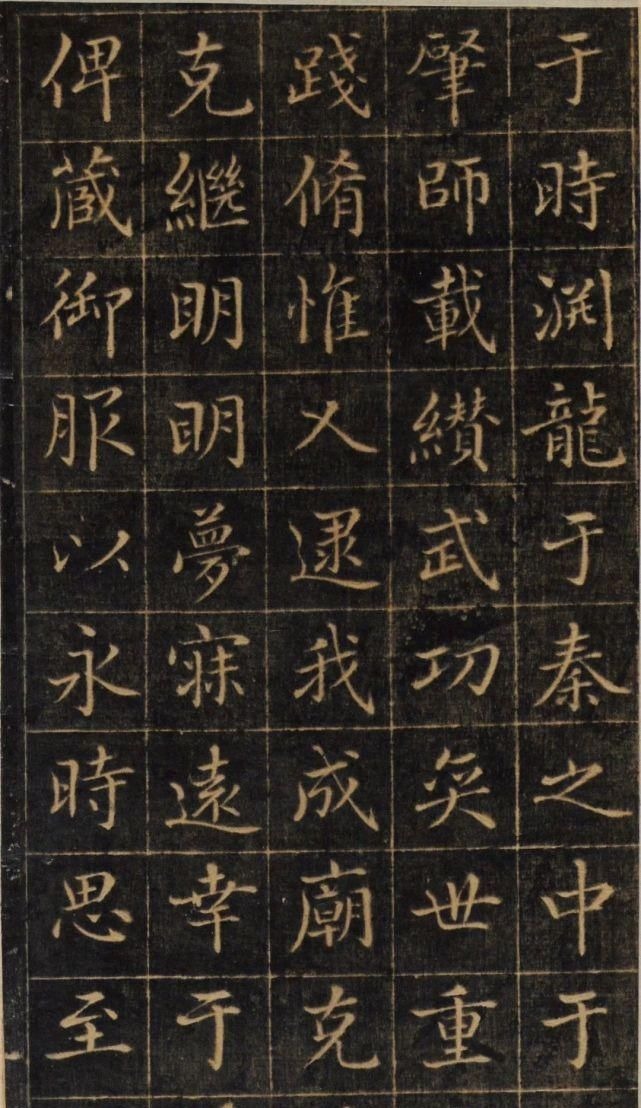 于時渊龍于秦之中于
肈師載纉武功奕世重
踐脩惟乂逮我成廟克
克繼明明夢寐遠幸于
俾蔵御服以永時思至